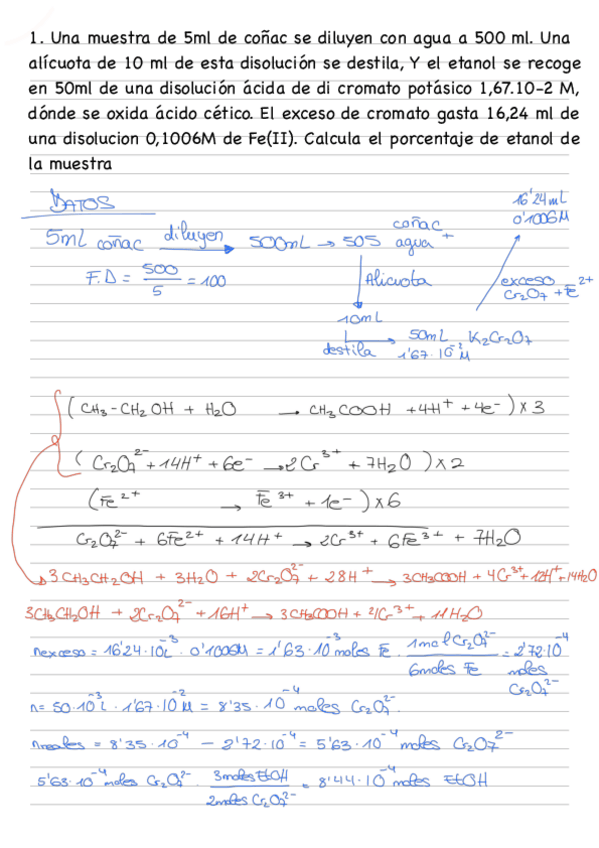 1. Una muestra de 5ml de coñac se diluyen con agua a 500 ml. Una
alícuota de 10 ml de esta disolución se destila, Y el etanol se recoge
en 50ml de una disolución ácida de di cromato potásico 1,67.10-2 M,
dónde se oxida ácido cético. El exceso de cromato gasta 16,24 ml de
una disolucion 0,1006M de Fe(II). Calcula el porcentaje de etanol de
la muestra
DATOS
16'24mL
0'1006M
5mL coñac diluyen 500mL → 505 coñac + agua
F.D = 500/5 = 100
Alicuota
exceso
Cr2O7 + Fe²⁺
10mL
destila
50mL K2Cr2O7
1'67·10⁻² M
(CH3-CH2OH + H2O → CH3COOH + 4H⁺ + 4e⁻) x 3
(Cr2O7²⁻ + 14H⁺ + 6e⁻ → 2Cr³⁺ + 7H2O) x 2
(Fe²⁺ → Fe³⁺ + 1e⁻) x 6
Cr2O7²⁻ + 6Fe²⁺ + 14H⁺ → 2Cr³⁺ + 6Fe³⁺ + 7H2O
3CH3CH2OH + 3H2O + 2Cr2O7²⁻ + 28H⁺ → 3CH3COOH + 4Cr³⁺ + 12H⁺ + 14H2O
3CH3CH2OH + 2Cr2O7²⁻ + 16H⁺ → 3CH3COOH + 4Cr³⁺ + 11H2O
nexceso = 16'24·10⁻³L · 0'1006M = 1'63·10⁻³ moles Fe · 1mol Cr2O7²⁻/6moles Fe = 2'72·10⁻⁴ moles Cr2O7²⁻
n= 50·10⁻³ L · 1'67·10⁻² M = 8'35·10⁻⁴ moles Cr2O7²⁻
nreales = 8'35·10⁻⁴ – 2'72·10⁻⁴ = 5'63·10⁻⁴ moles Cr2O7²⁻
5'63·10⁻⁴ moles Cr2O7²⁻ · 3moles EtOH/2moles Cr2O7²⁻ = 8'44·10⁻⁴ moles EtOH